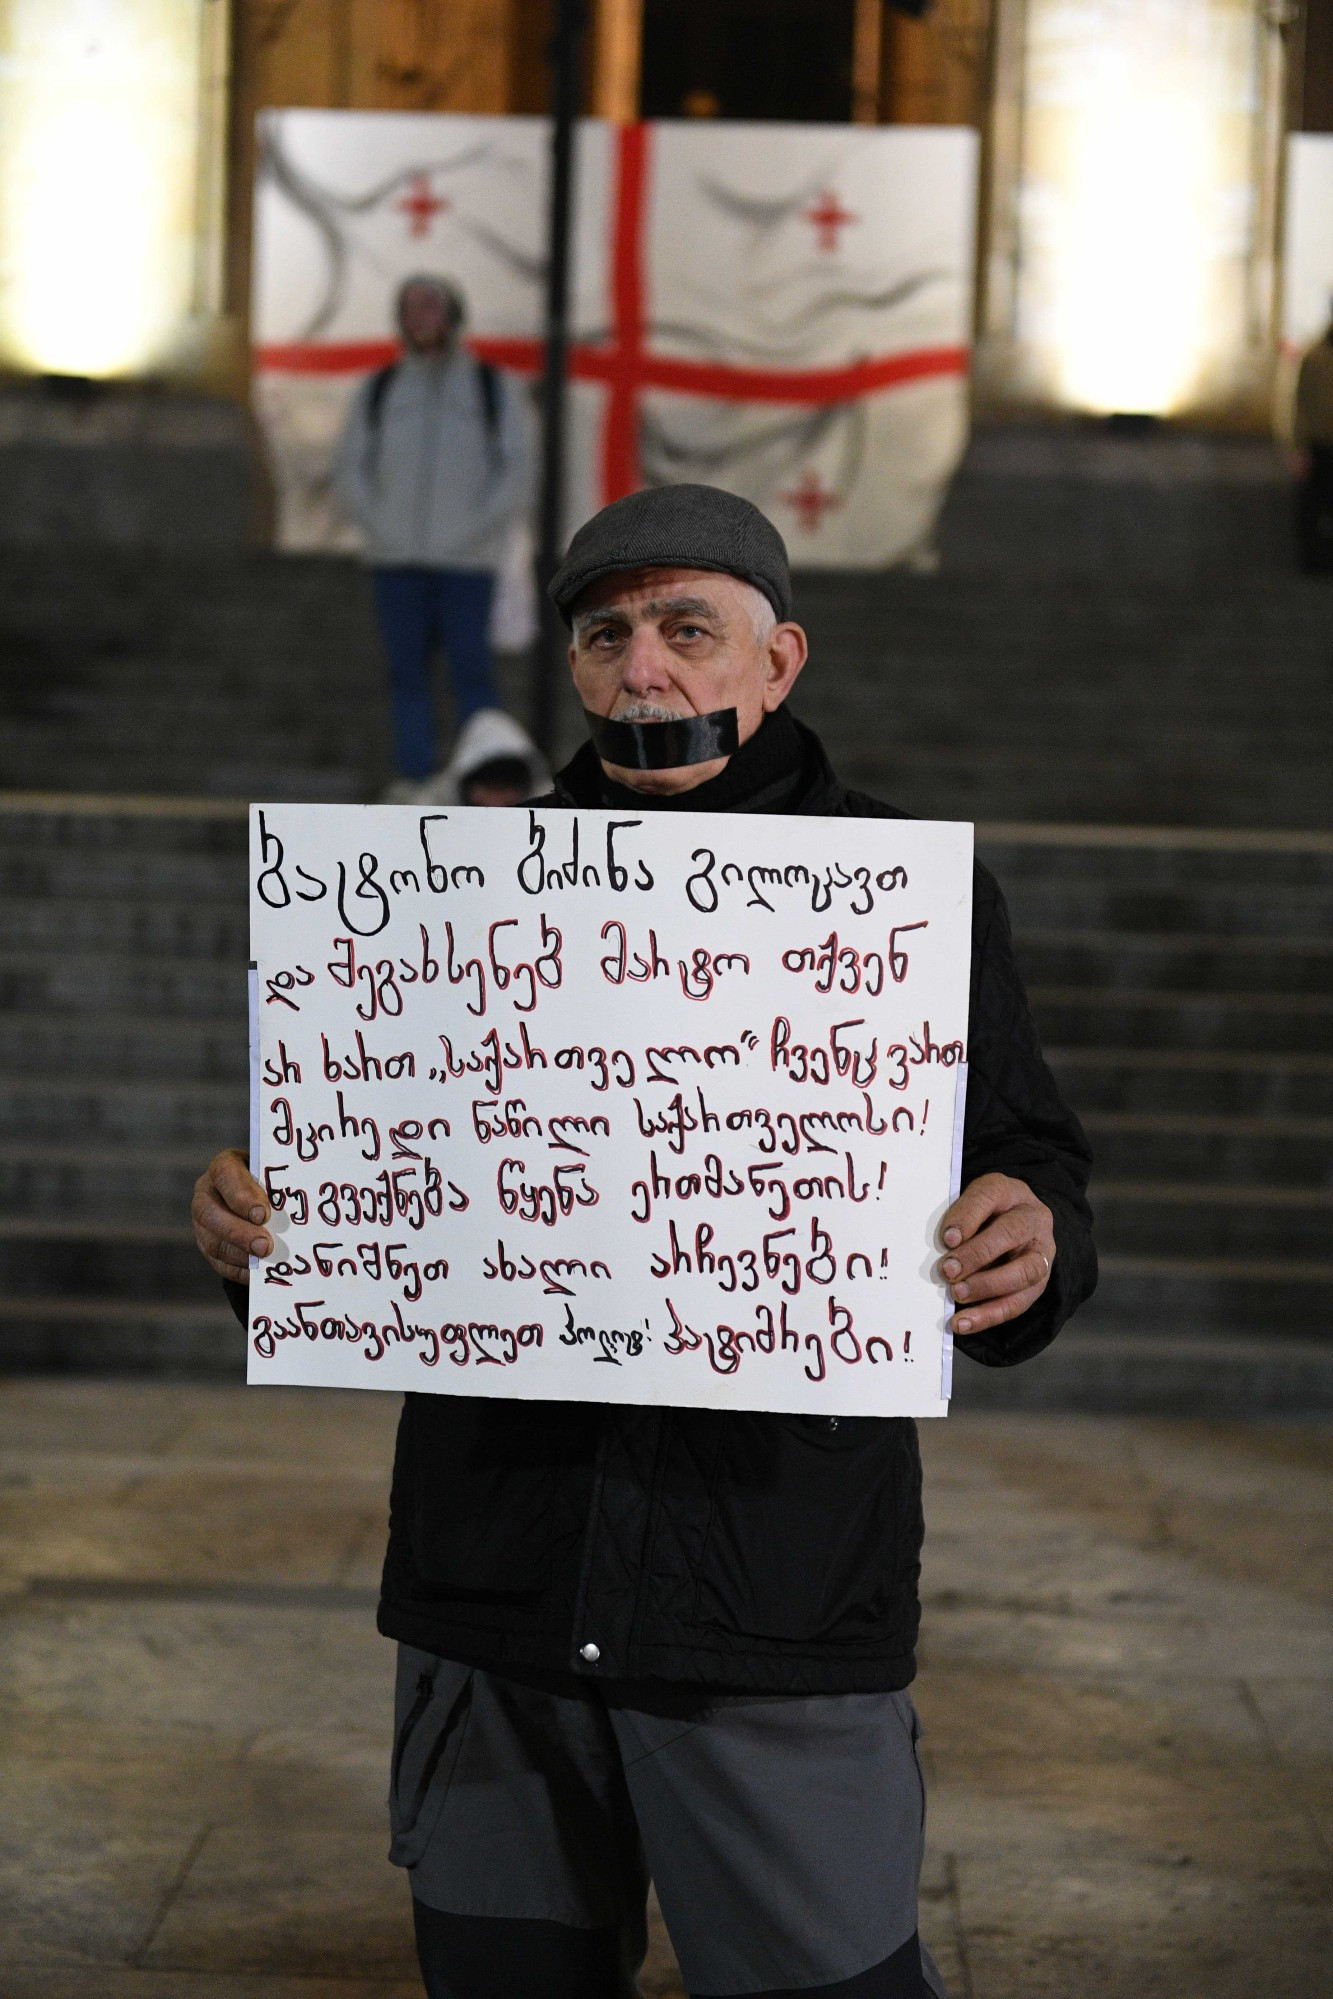 ბატონო ბიძინა გილოცავთ
და შეგახსენებ მარტო თქვენ
არ ხართ „საქართველო“ ჩვენც ვართ
მცირედი ნაწილი საქართველოსი!
ნუ გვექნება წყენა ერთმანეთის!
დანიშნეთ ახალი არჩევნები!
გაანთავისუფლეთ პოლიტ! პატიმრები!